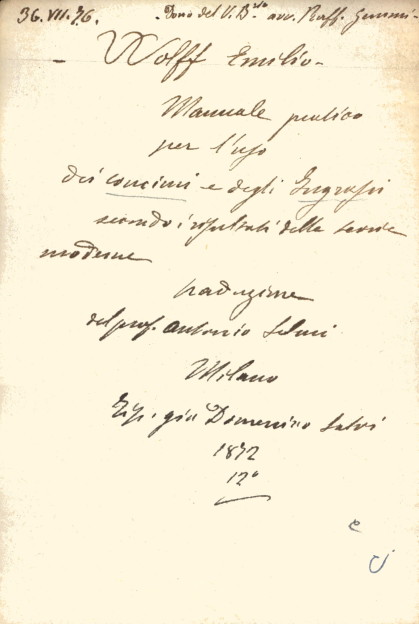 36. VII. 76. Dono del V. B.rio avv. Raff.
Wolff Emilio
Manuale pratico
per l'uso
dei concimi e degli Ingrassi
secondo i risultati delle teorie
moderne
traduzione
del prof. Antonio Selmi
Milano
Tip. già Domenico Salvi
1872
12°
e